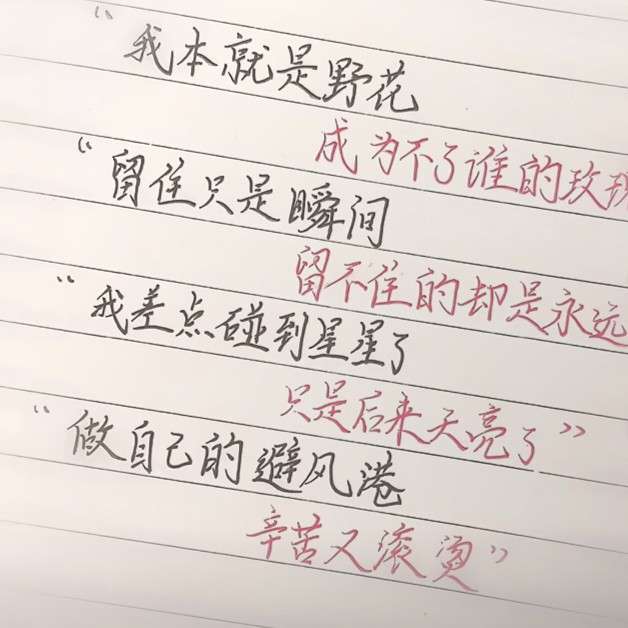 “我本就是野花
成为不了谁的玫瑰
“留住只是瞬间
留不住的却是永远
“我差点碰到星星了
只是后来天亮了”
“做自己的避风港
辛苦又滚烫”